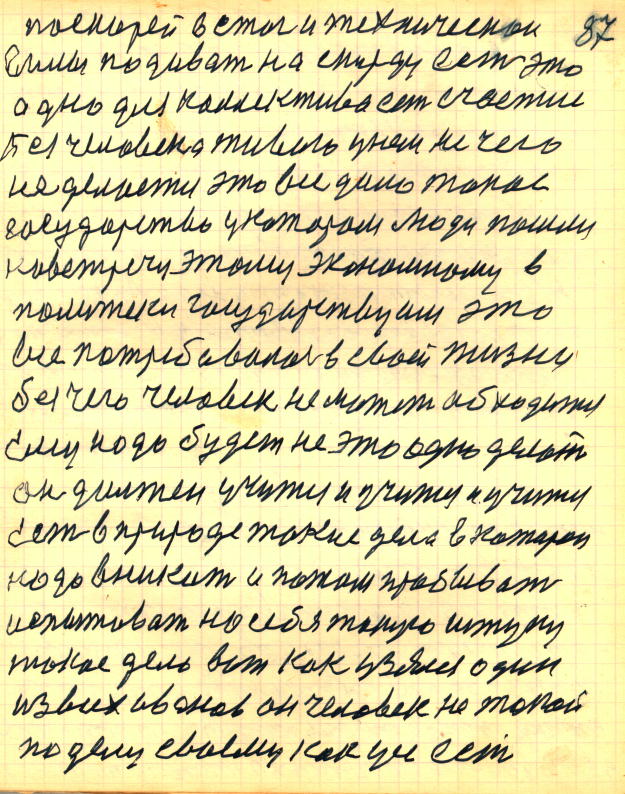 поскорей в стог и технической 87
силы подават на скирду есть это
одно для коллектива ест счастие
Без человека живого у нас не чего
не делается это все дело такое
государство у котором люди пошли
навстречу этому экономному в
политеки государствуим это
все потребовалос в своей жизни
без чего человек не может обходится
Ему надо будет не это одно делать
он должен учится и учится и учится
Есть в природе такие дела в котарои
надо вникат и потом пробыват
испытоват на себя такую штуку
такое дело вот как взялся один
из всех иванов он человек не такой
по делу своему как уже есть